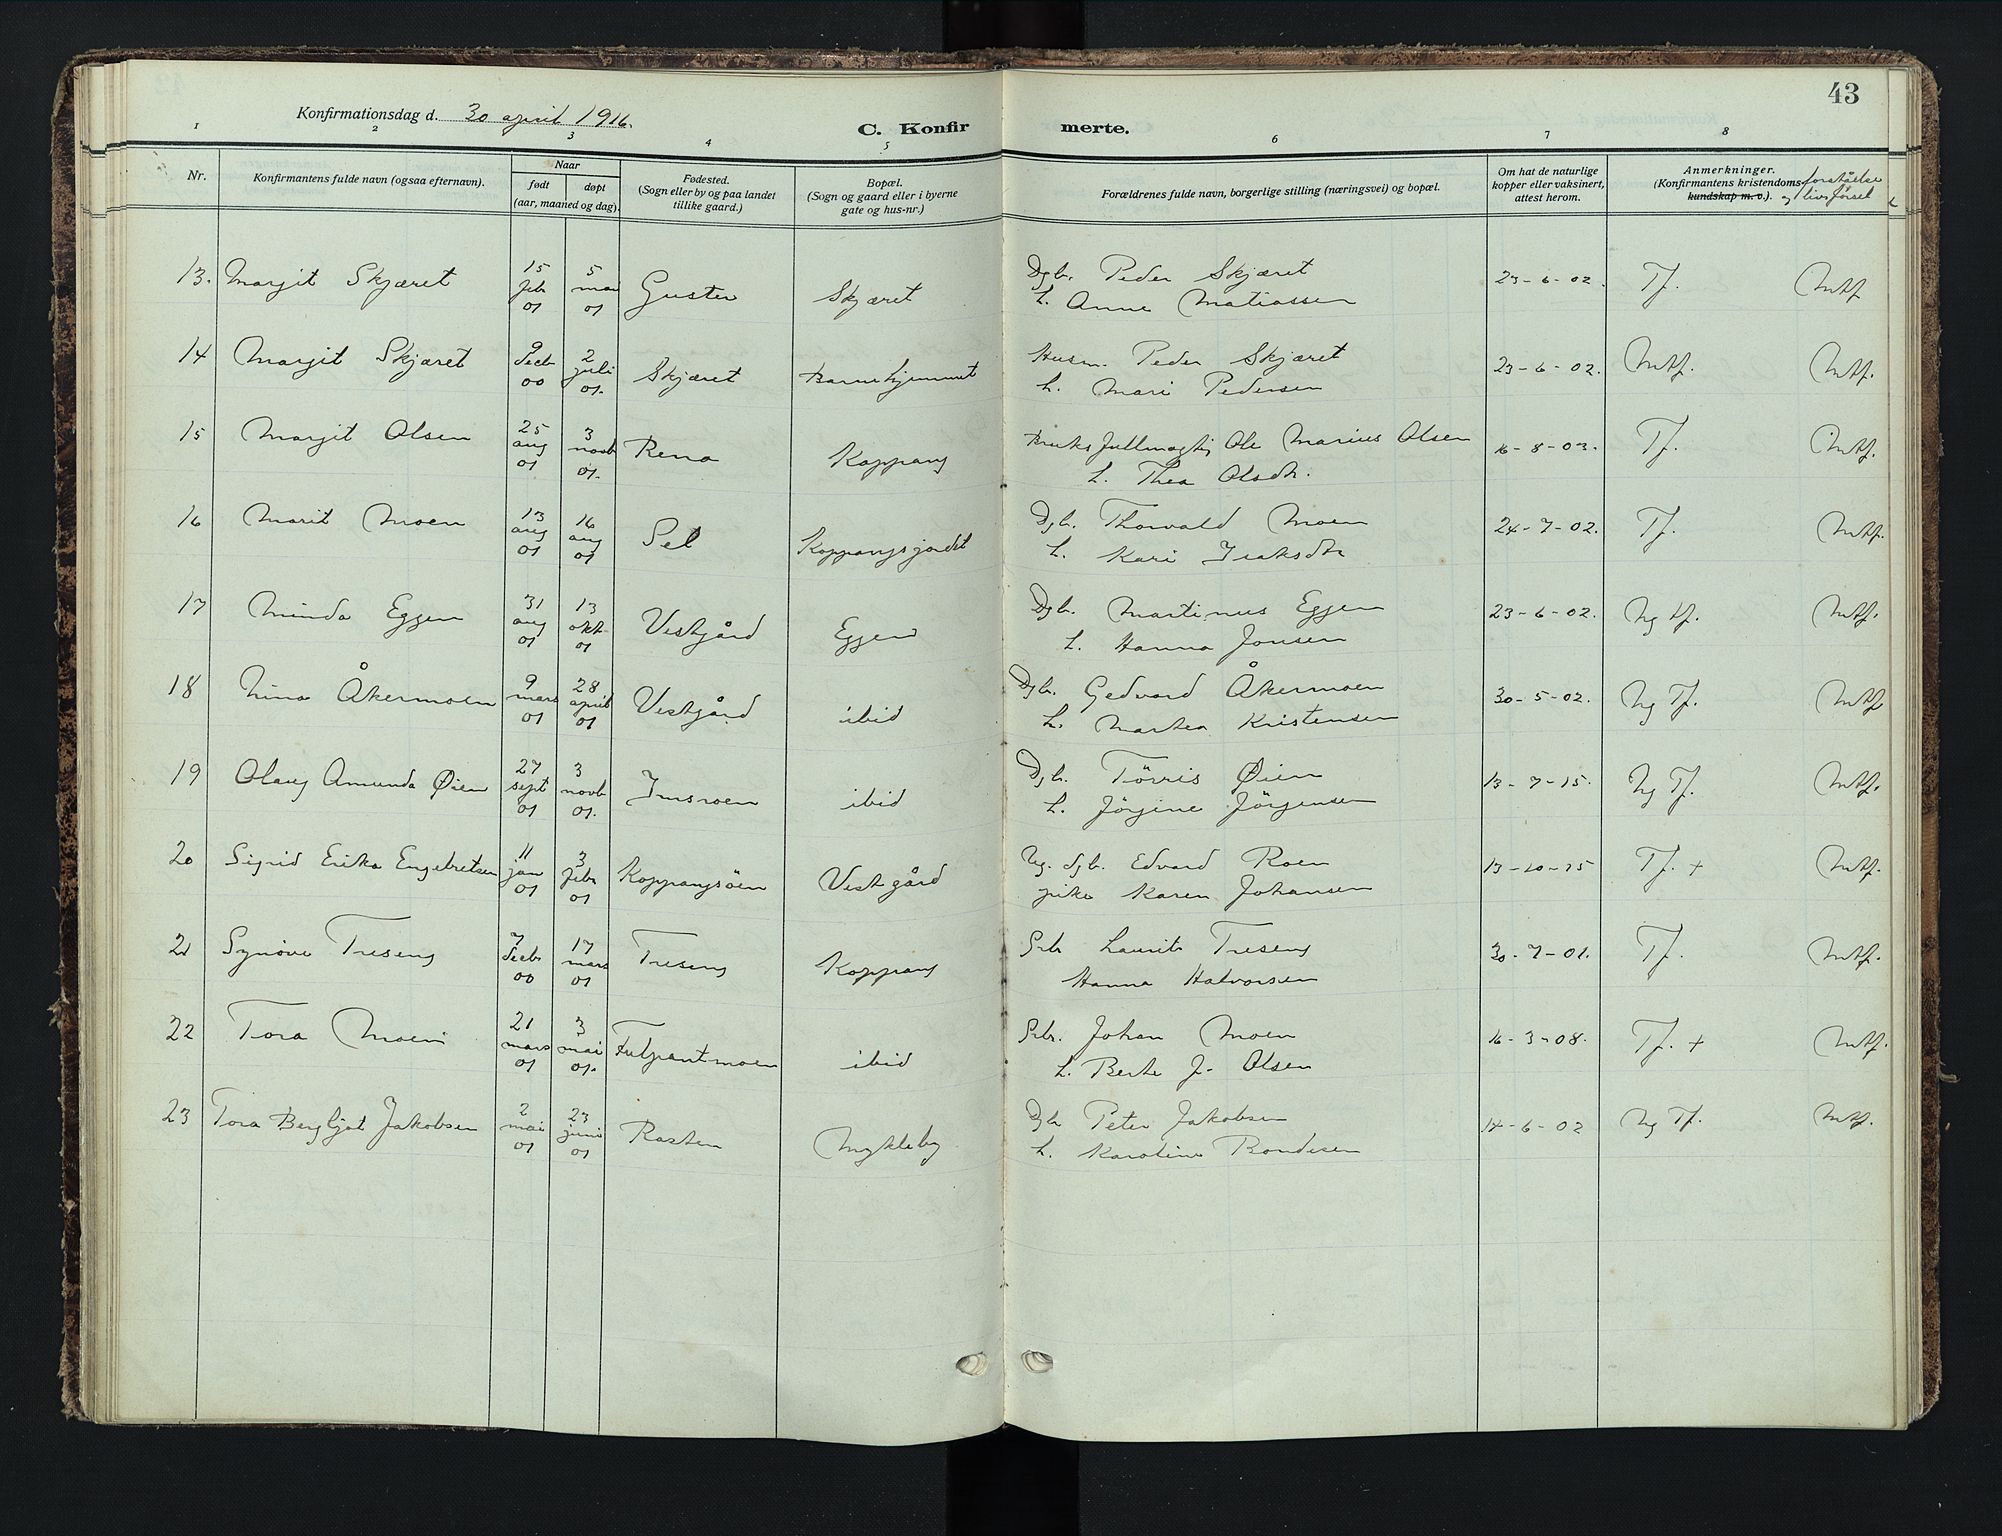 43
Konfirmationsdag d. 30 april 1916.
C. Konfirmerte.
1 2 3 4 5 6 7 8
Nr. Konfirmantens fulde navn (ogsaa efternavn). Naar født døpt (aar, maaned og dag). Fødested. (Sogn eller by og paa landet tillike gaard.) Bopæl. (Sogn og gaard eller i byerne gate og hus-nr.) Forældrenes fulde navn, borgerlige stilling (næringsvei) og bopæl. Om hat de naturlige kopper eller vaksinert, attest herom. Anmerkninger. (Konfirmantens kristendoms- kundskap m. v.). forståelse og livsførsel
13. Margit Skjæret 15 febr 01 5 mai 01 Guster Skjæret Dgbr. Peder Skjæret 23-6-02. Tf. Mtf
h. Anne Matiassen
14 Margit Skjæret 9 decb 00 2 juli 01. Skjæret Barnehjemmet Husm. Peder Skjæret 23-6-02. Mtf. Mtf.
h. Mari Pedersen
15 Margit Olsen 25 aug 01 3 novb 01. Rena Koppang Bruksfullmægtig Ole Marius Olsen 16-8-03. Tf. Mtf.
h. Thea Olsdtr.
16 Marit Moen 13 aug 01 16 aug 01 Sel Koppangsjordet Dgbr. Thorvald Moen 24-7-02. Tf. Mtf.
h. Kari Isaksdtr
17 Minda Eggen 31 aug 01 13 okt 01 Vestgård Eggen Dgbr. Martinus Eggen 23-6-02. Ng tf. Mtf.
h. Hanna Jonsen
18 Nina Åkermoen 9 mars 01 28 april 01 Vestgård ibid Dgbr. Gedvard Åkermoen 30-5-02. Ng Tf. Mtf
h. Martea Kristensen
19 Olaug Amunda Øien 27 sept 01 3 novb 01. Imsroen ibid Dgbr. Tørris Øien 13-7-15. Ng Tf. Mtf.
h. Jörgine Jörgensen
20 Sigrid Erika Engebretsen 11 jan 01 3 febr 01 Koppangsöen Vestgård Ug. dgbr. Edvard Roen 13-10-15 Tf. + Mtf.
pike Karen Johansen
21 Synöve Treseng 7 decb 00 17 mars 01 Treseng Koppang Srbr Laurits Treseng 30-7-01. Tf. Mtf.
Hanna Halvorsen
22 Tora Moen 21 mars 01 3 mai 01. ibid Srbr. Johan Moen 16-3-08. Tf. + Mtf.
h. Berte J. Olsen
23 Tora Bergljot Jakobsen 2 mai 01 23 juni 01 Rasten Mykleby Dgbr Peter Jakobsen 14-6-02 Ng Tf. Mtf.
h. Karoline Bondesen